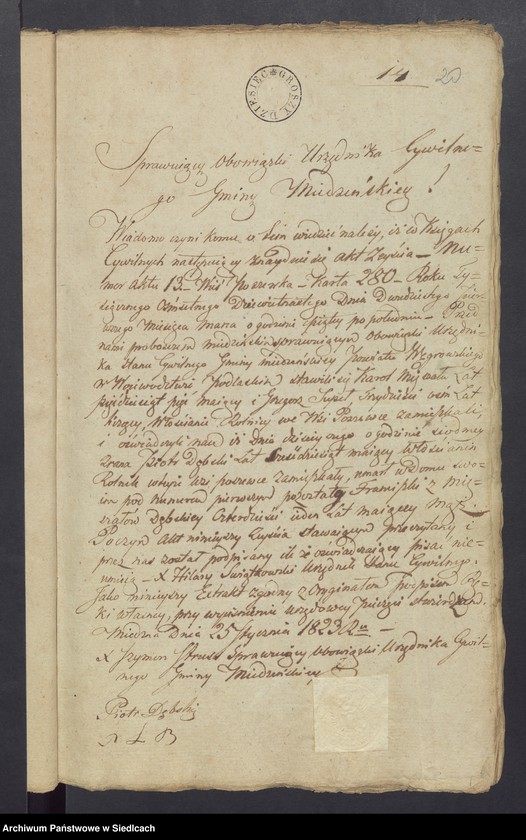 14 20
DZIESIĘC GROSZY
Sprawuiący Obowiązki Urzędnika Cywilne-
go Gminy Miedzeńskiey!
Wiadomo czyni komu o tem wiedzieć należy, iż w Księgach
Cywilnych następujący znayduie się Akt Zeyścia – Nu-
mer Aktu 13 – Wieś – Karta 280 – Roku Ty-
siącznego Osmsetnego Dnia Dwudziestego Pier-
wszego Miesiąca Marca o godzinie piątey po południu – Przed
nami proboszczem miedzeńskim sprawuiącym Obowiązki Urzędni-
ka Stanu Cywilnego Gminy miedzeńskiey Powiatu Węgrowskiego
w Woiewodztwie Podlaskim stawili się Karol Lat
pięćdziesiąt pięć maiący i Grzegorz Trzydzieści osm Lat
liczący, Włościanie Rolnicy we Wsi zamieszkali,
i oświadczyli nam iż dnia o godzinie siodmey
Piotr Dębski Lat maiący Włościanin
Rolnik w teyże wsi zamieszkały, umarł w Domu swo-
im pod numerem pierwszym pozostałą Franciszkę z Mie-
szałow Dębskiey Czterdzieści ieden Lat maiącey Mąż.
Poczym Akt ninieyszy Zeyścia stawaiącym przeczytany i
przez nas został podpisany ile że oświadczaiący pisać nie
umieią – X Hilary Swiątkowski Urzędnik Stanu Cywilnego.
Jako ninieyszy Extrakt zgodny z Oryginałem podpisem Rę-
ki własney, przy wyciśnieniu urzędowey pieczęci stwierdzam.
Miedzna Dnia 25 Stycznia 1823 Ru –
X Szymon Sprawuiący Obowiązki Urzędnika Cywil-
nego Gminy Miedzeńskiey
Piotr Dębski
Archiwum Państwowe w Siedlcach